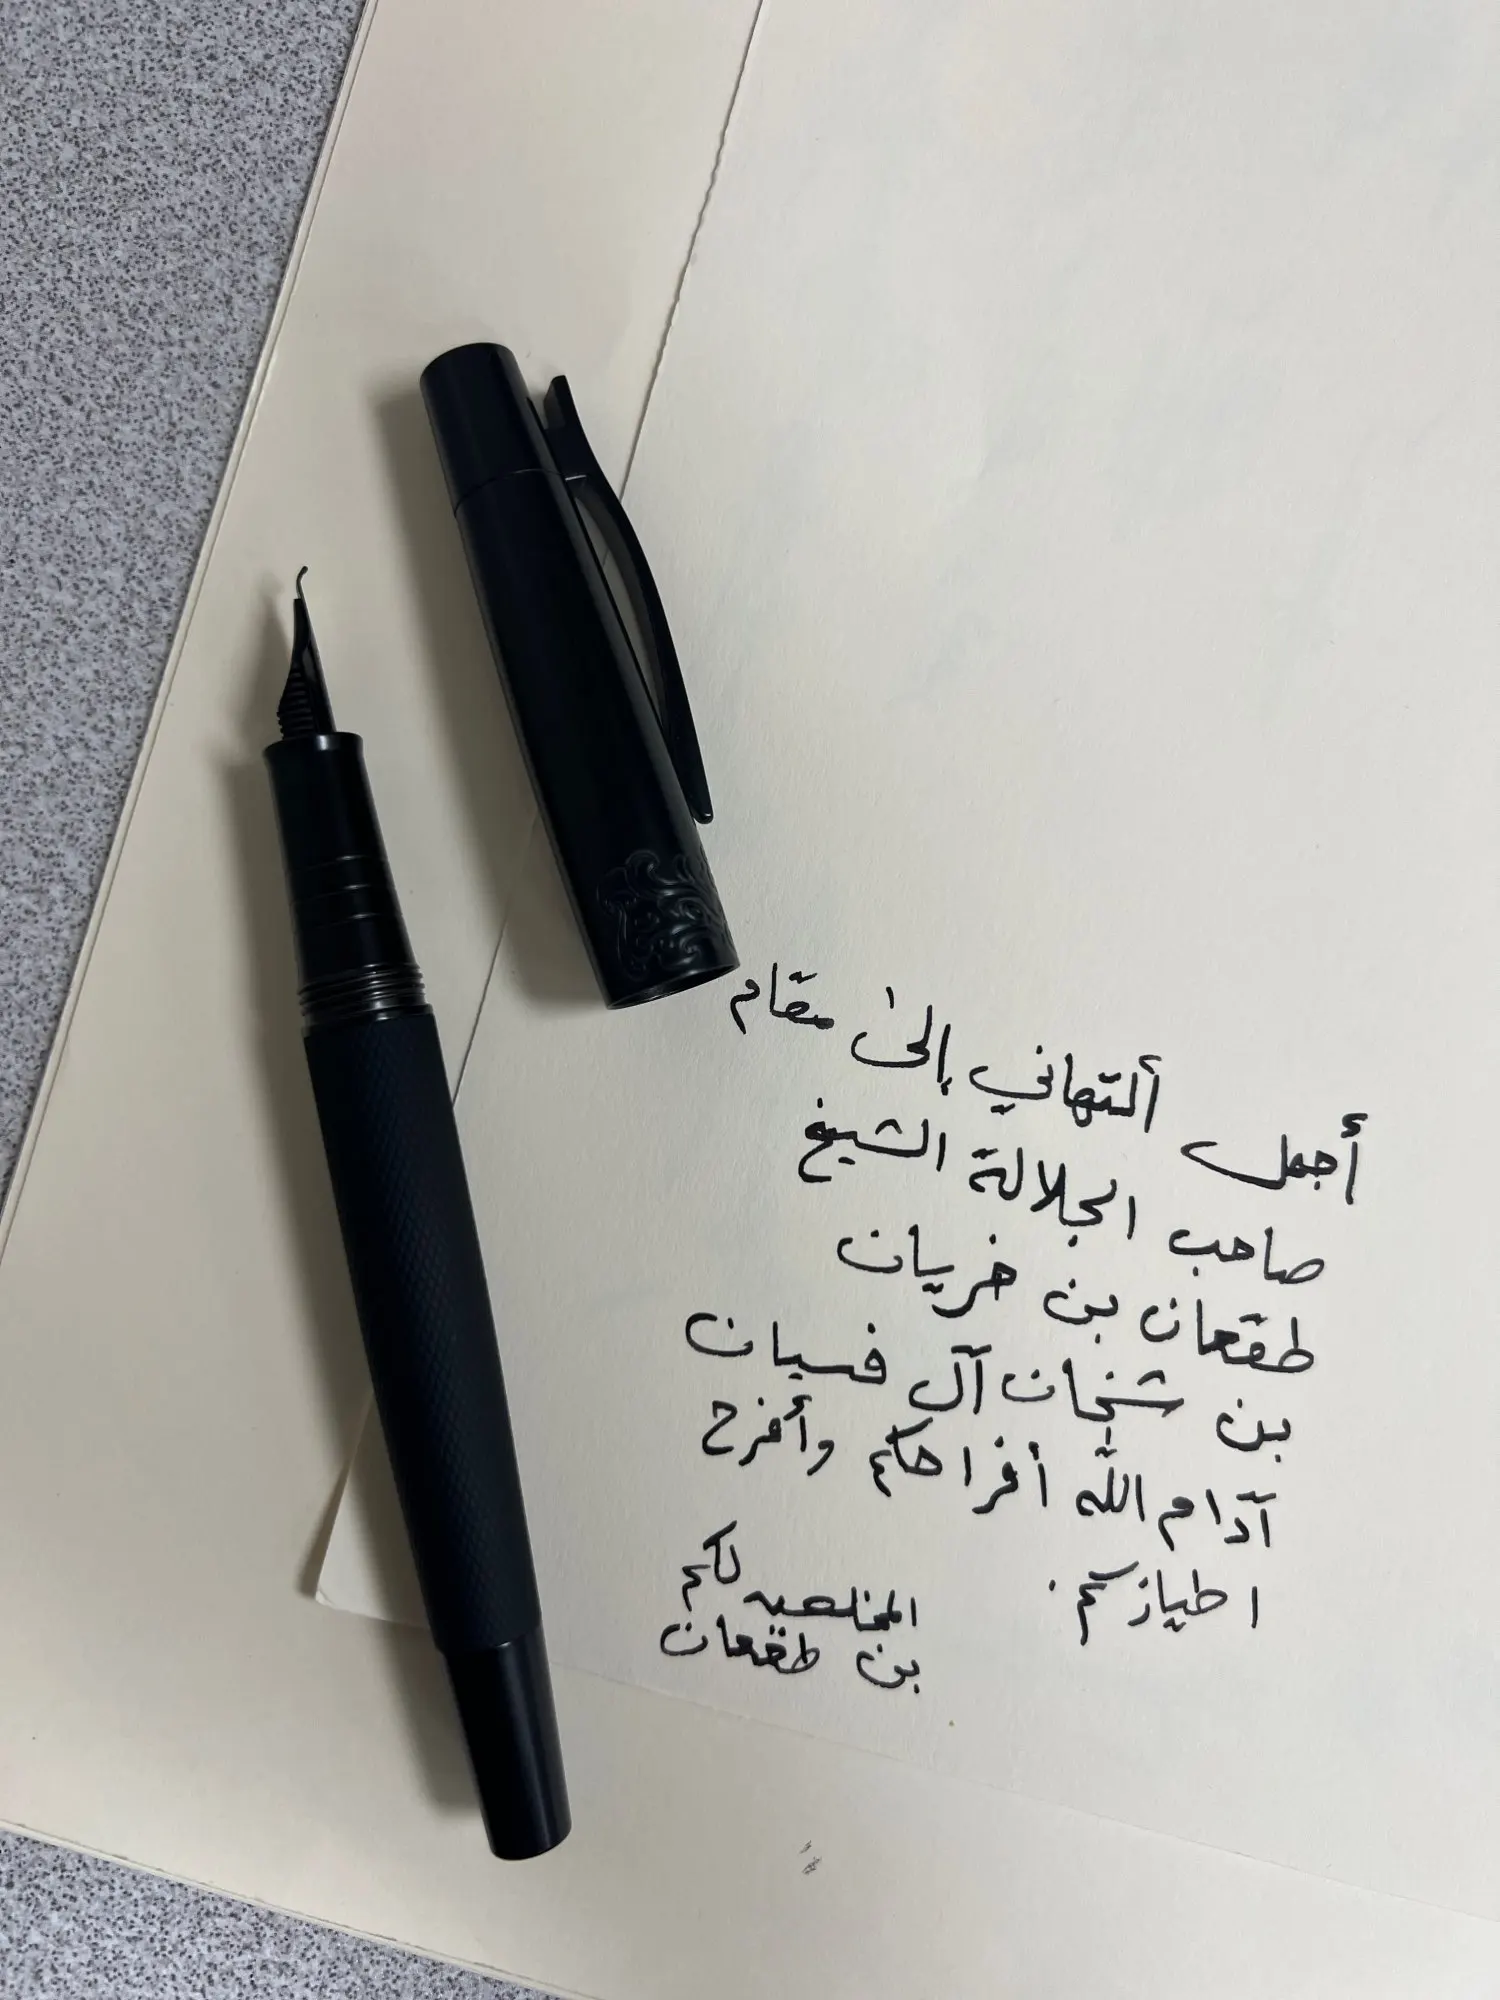 أجمل ألتهاني إلىٰ مقام
صاحب الجلالة الشيخ
طقعان بن خريان
بن شخان آل فسيان
آدام الله أفراحكم وأفرح
اطيازكم.
المخلص لكم
بن طقعان